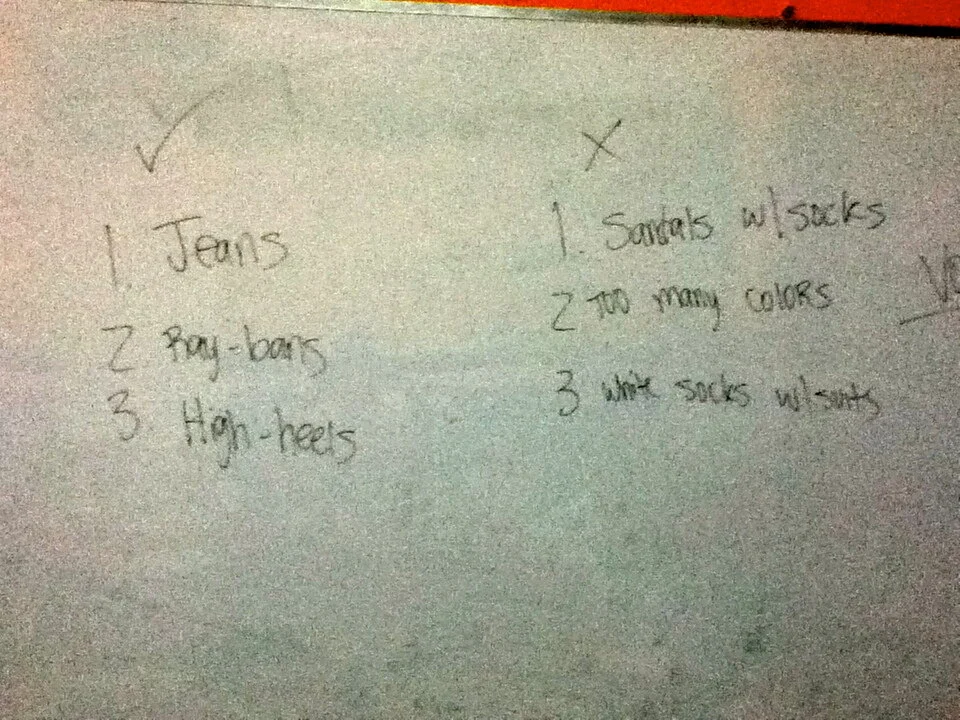 ✓
1. Jeans
2 Ray-bans
3. High-heels
X
1. Sandals w/socks
2 TOO many colors
3 white socks w/suits